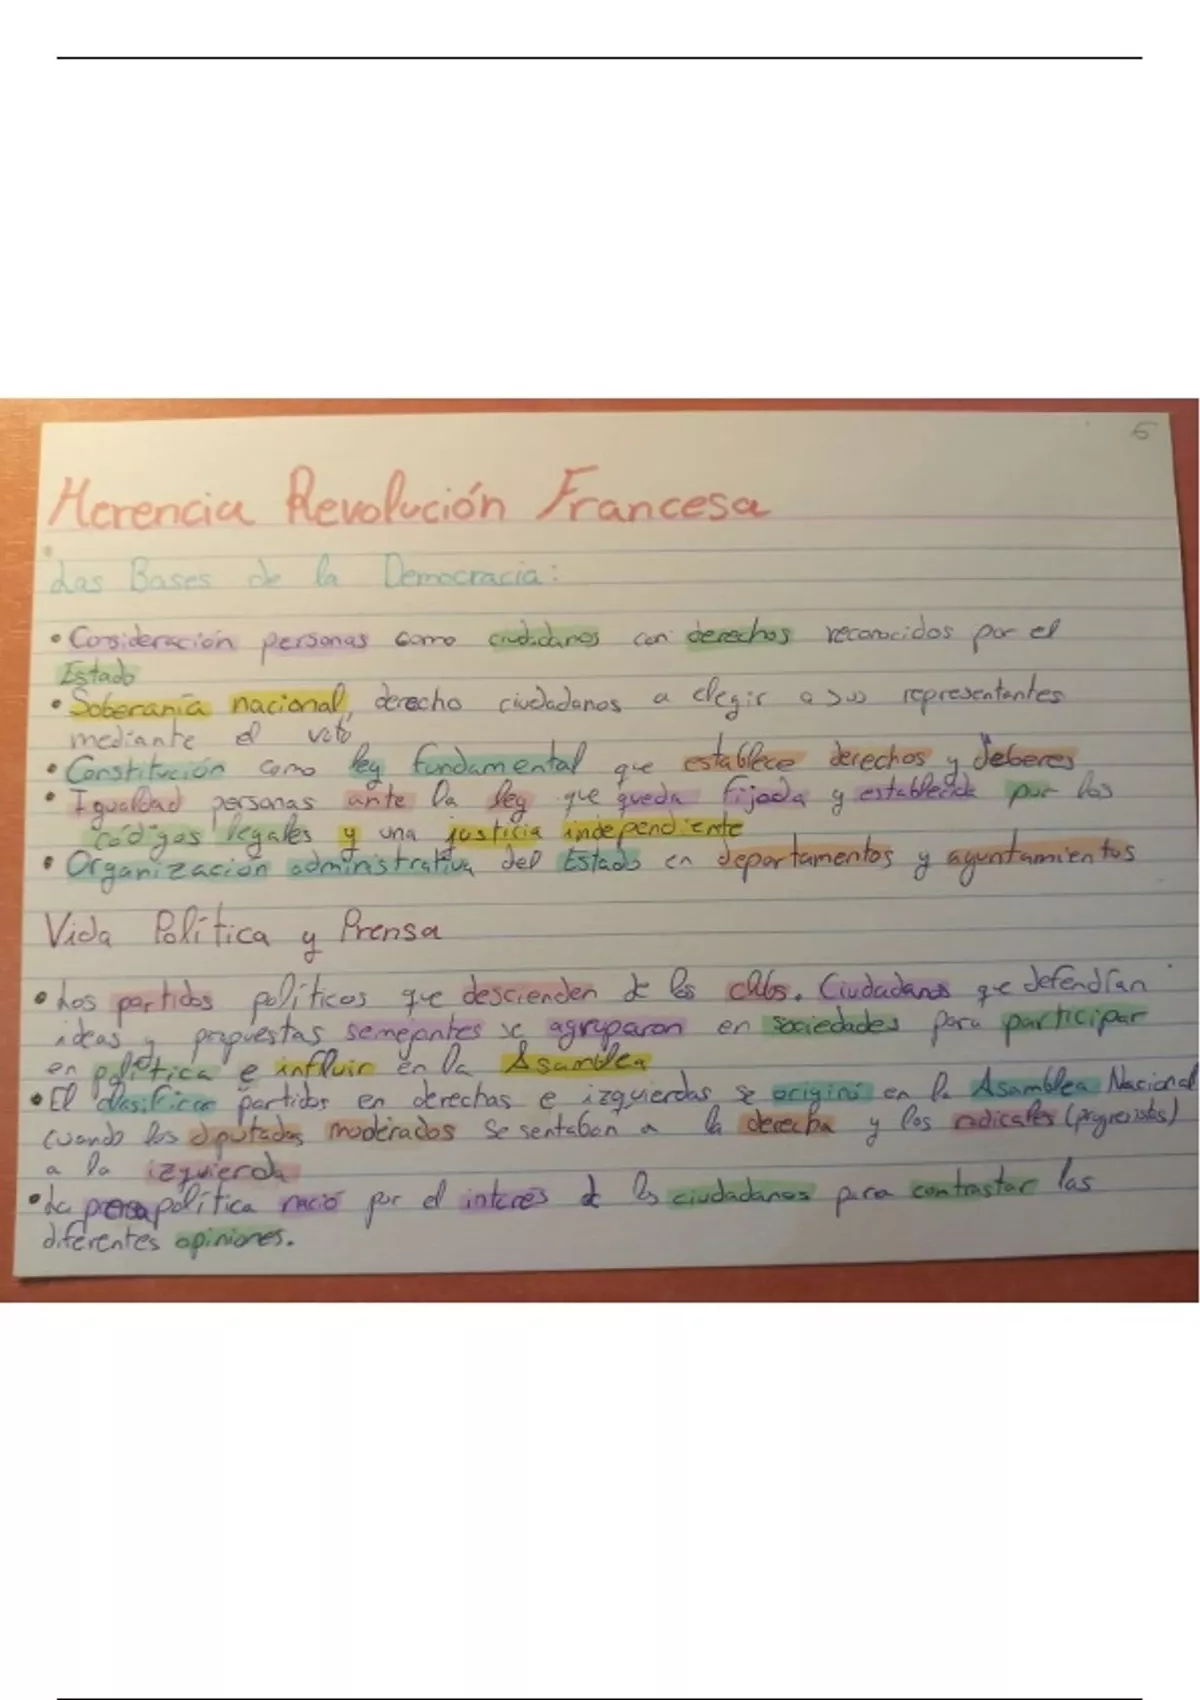 5
Herencia Revolución Francesa
Las Bases de la Democracia:
• Consideración personas como ciudadanos con derechos reconocidos por el
Estado
• Soberanía nacional, derecho ciudadanos a elegir a sus representantes
mediante el voto
• Constitución como ley fundamental que establece derechos y deberes
• Igualdad personas ante la ley que queda fijada y establecida por los
códigos legales y una justicia independiente
• Organización administrativa del Estado en departamentos y ayuntamientos
Vida Política y Prensa
• Los partidos políticos que descienden de los clubs. Ciudadanos que defendían
ideas y propuestas semejantes se agruparon en sociedades para participar
en política e influir en la Asamblea
• El clasificar partidos en derechas e izquierdas se originó en la Asamblea Nacional
cuando los diputados moderados se sentaban a la derecha y los radicales (progresistas)
a la izquierda
• La prensa política nació por el interés de los ciudadanos para contrastar las
diferentes opiniones.